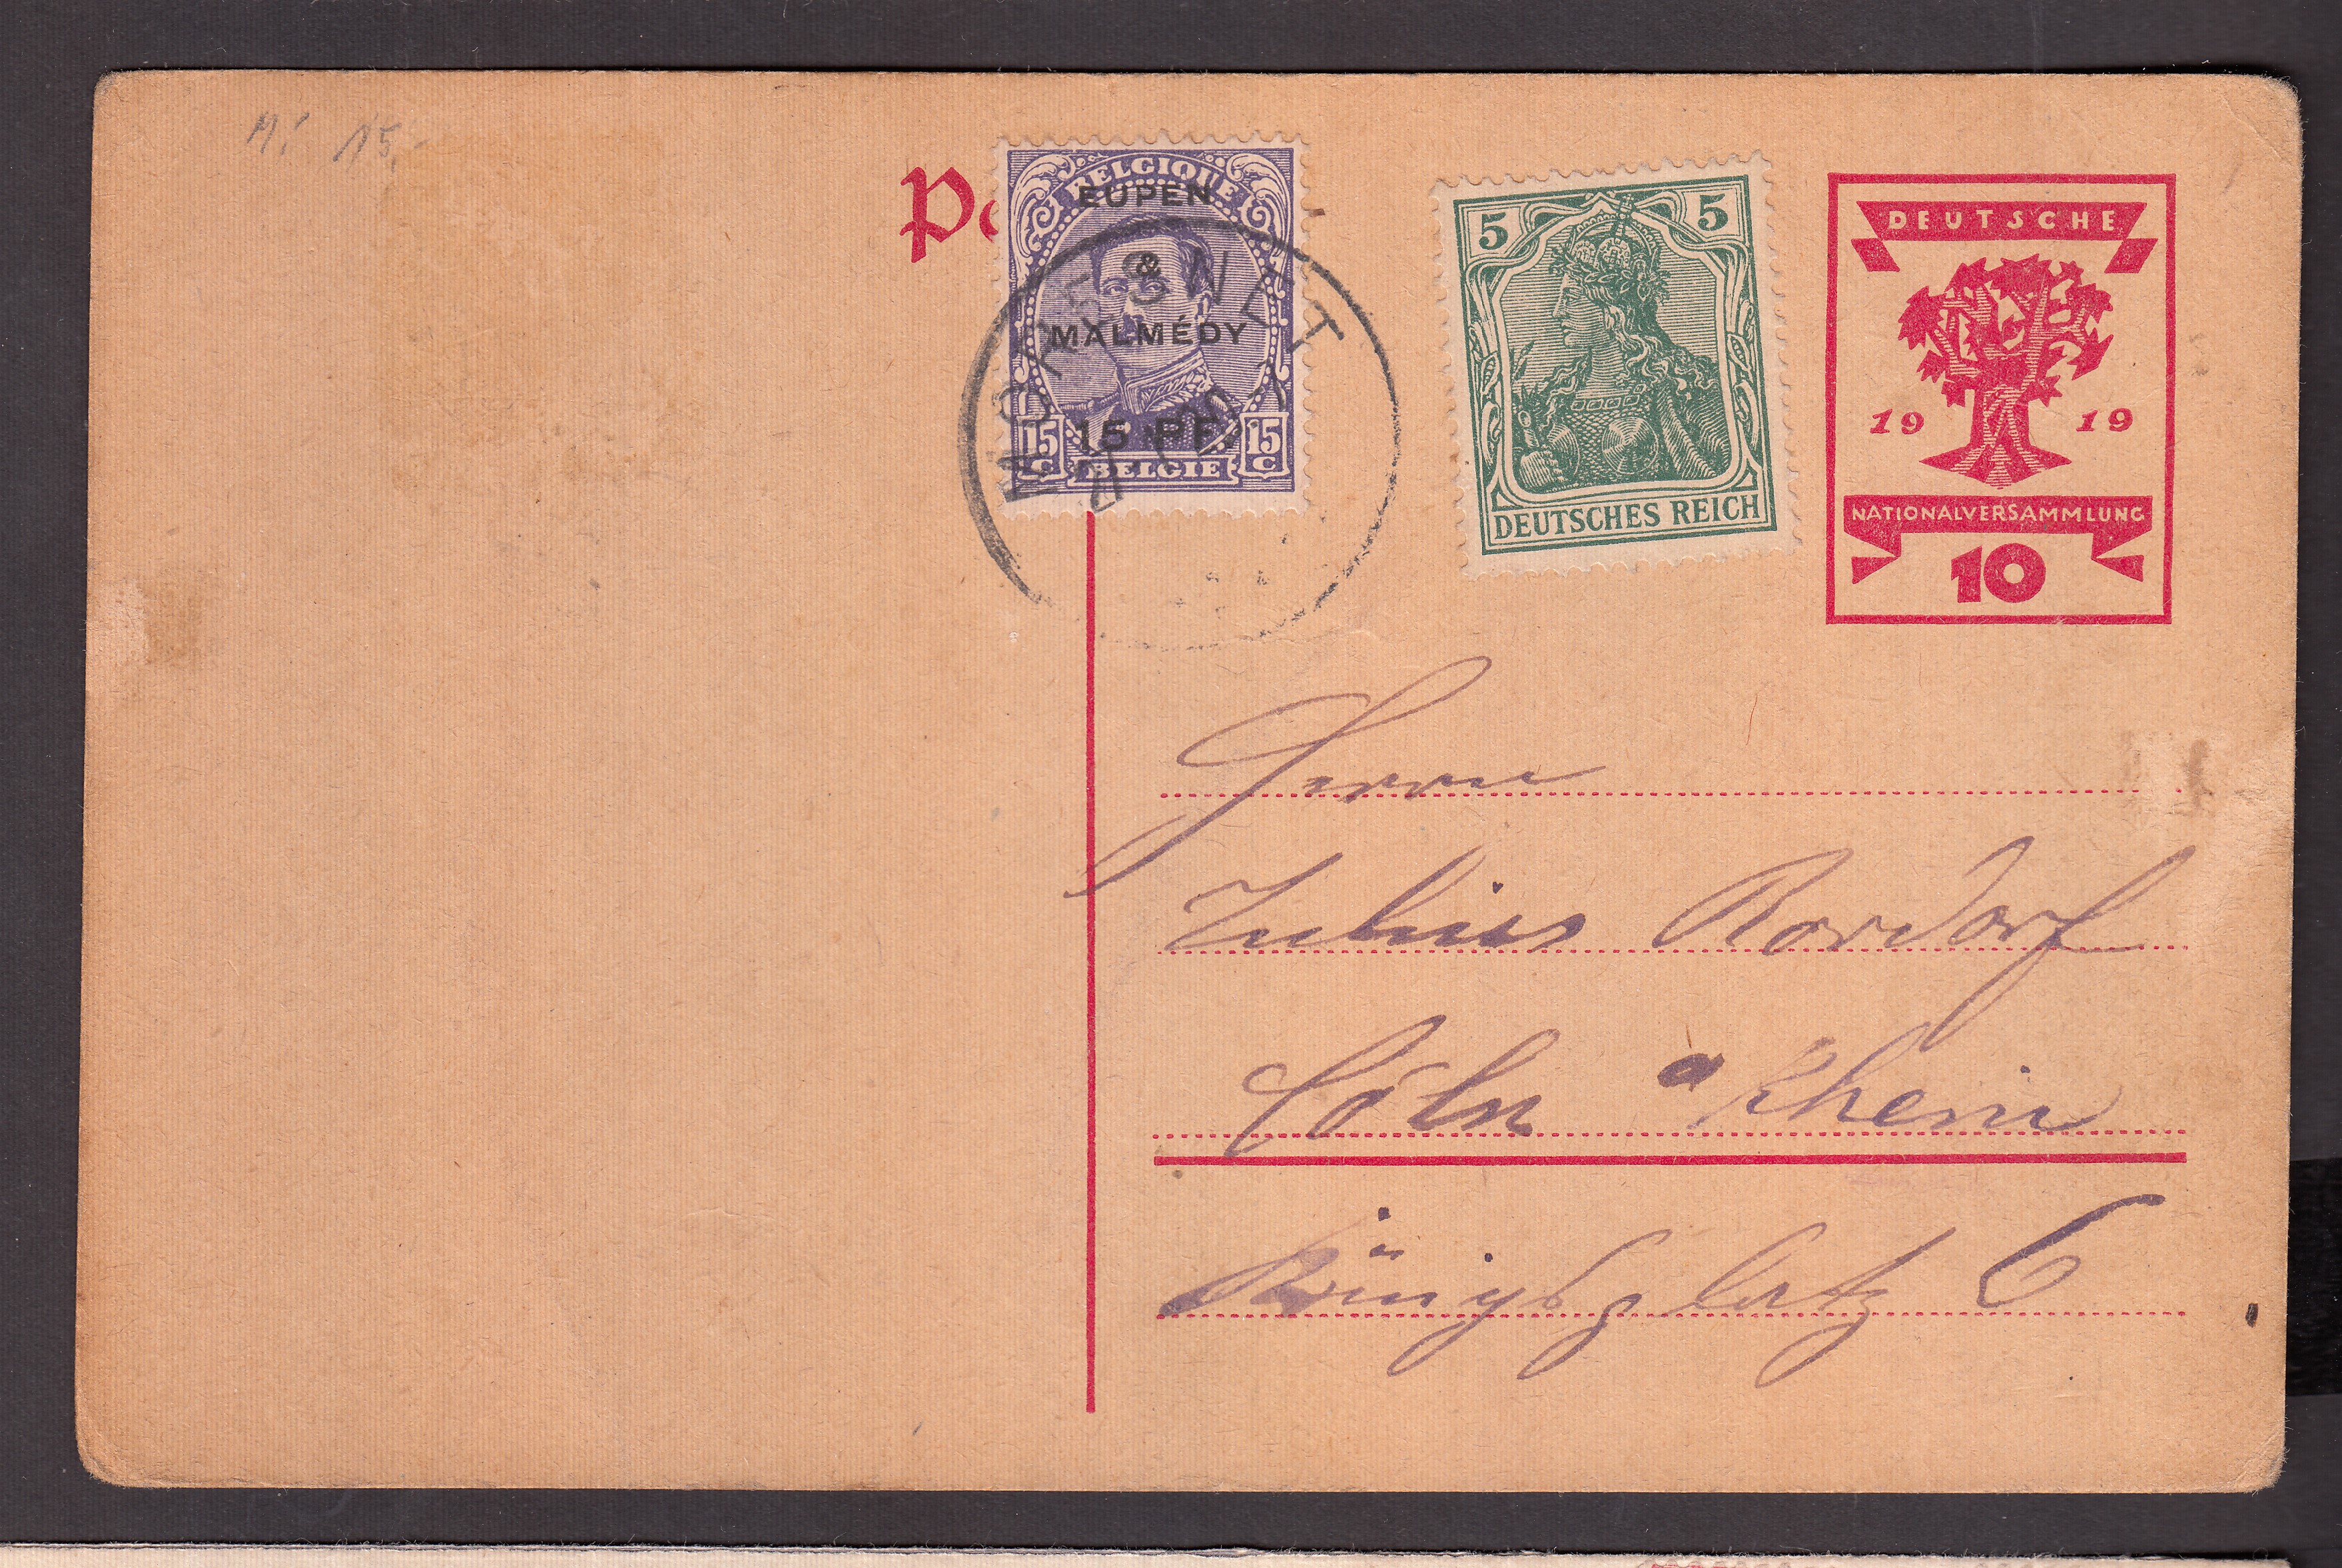 Mi 15,-
Po
BELGIQUE
EUPEN
&
MALMÉDY
15 PF.
15 C
15 C
BELGIE
MORESNET
5 5
DEUTSCHES REICH
DEUTSCHE
19 19
NATIONALVERSAMMLUNG
10
Herrn
Julius Rordorf
Cöln a Rhein
Königsplatz 6